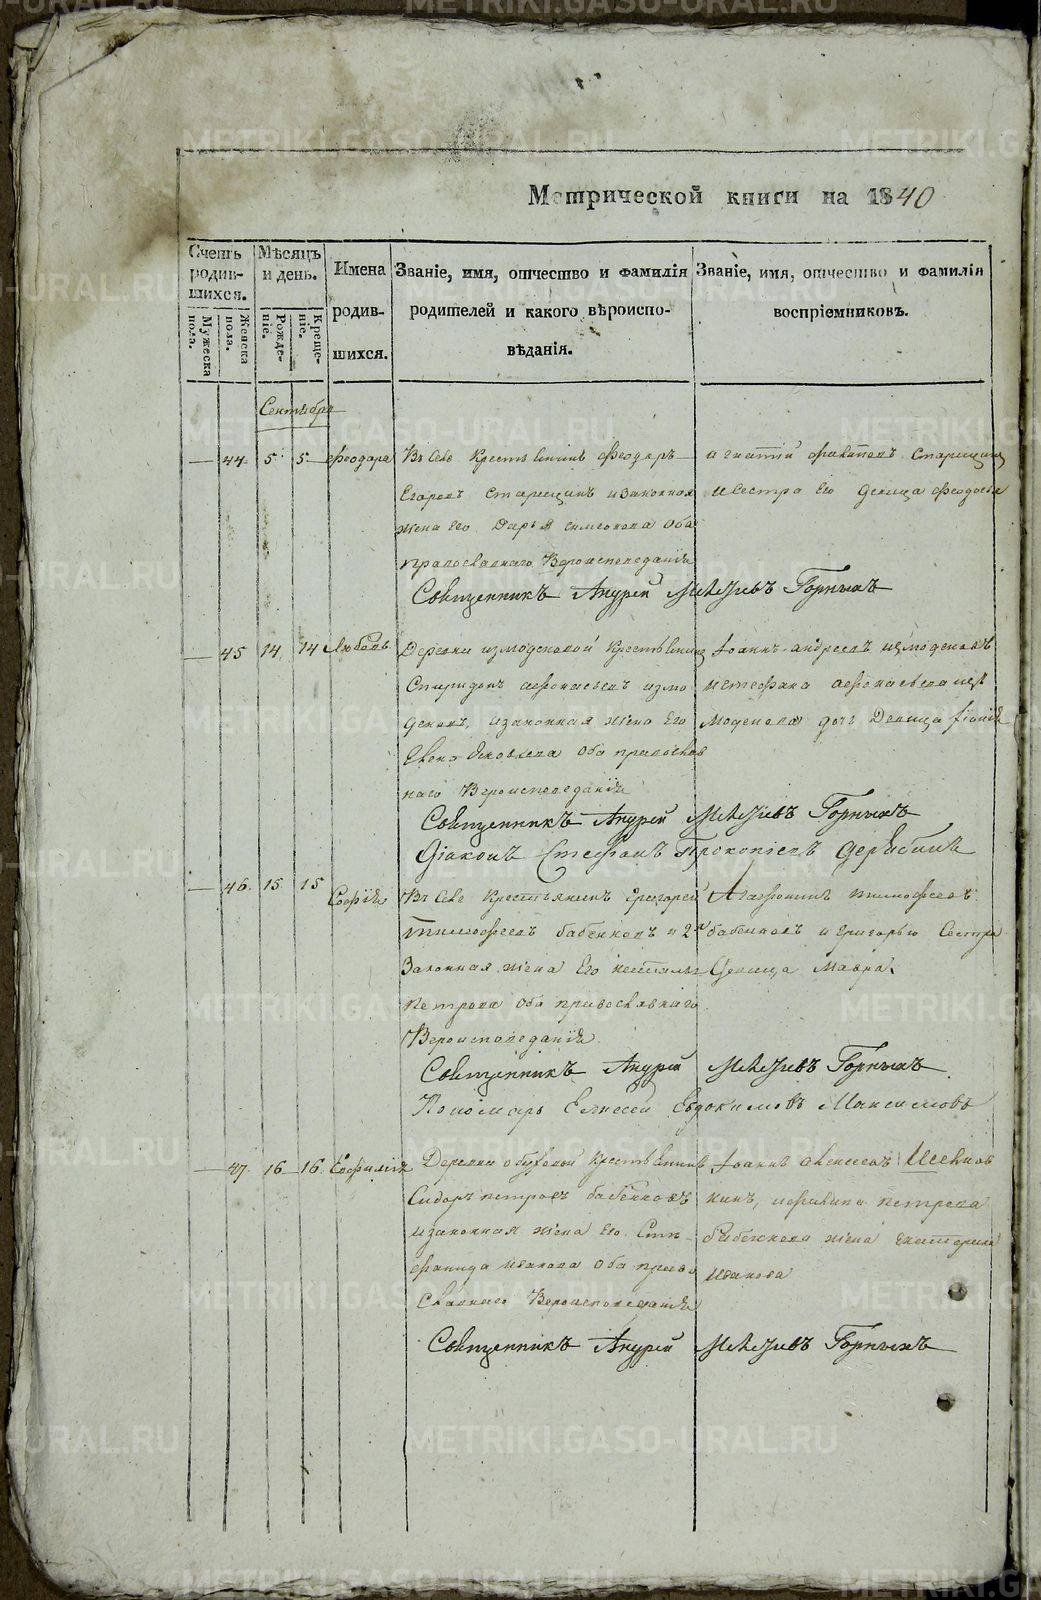 Метрической книги на 1840
Счетъ родив-шихся.
Мужеска пола.
Женска пола.
Мѣсяцъ и день.
Рожде-ніе.
Креще-ніе.
Имена родив-шихся.
Званіе, имя, отчество и фамилія
родителей и какого вѣроиспо-
вѣданія.
Званіе, имя, отчество и фамилія
воспріемниковъ.
Сентября
— 44 5 5 Феодора
Въ Селе Крестьянинъ Феодоръ
Егоровъ Старицинъ и законная
жена его Дарья Симеонова оба
православнаго Вероисповеданія
Игнатій Старицинъ
и Сестра Его Девица Феодосья
Священникъ Андрей Горныхъ
— 45 14 14 Любовь
Деревни Измоденовой Крестьянинъ
Спиридонъ Афонасьевъ Измо
деновъ, и законная жена Его
Яковлева оба православ
наго Вероисповеданія
Іоаннъ Андреевъ Измоденовъ
и Стефана Афонасьева Из
моденова дочь Девица
Священникъ Андрей Горныхъ
Діаконъ Стефанъ Прокопіевъ Дерябинъ
— 46. 15 15 Софія
Въ Селе Крестьянинъ Григорей
Тимофеевъ Бабенковъ и 2я
Законная жена Его
Петрова оба православнаго
Вероисповеданія
Агафонникъ Тимофеевъ
Бабенковъ и Григорью Сестра
Девица Мавра
Священникъ Андрей Горныхъ
Пономарь Елисей Евдокимовъ Максимовъ
— 47. 16 16
Деревни Крестьянинъ
Сидоръ Петровъ Бабенковъ
и законная жена Его Сте
фанида Иванова оба право
славнаго Вероисповеданія
Іоаннъ Алексеевъ
Петрова
Бабенкова жена Екатерина
Иванова
Священникъ Андрей Горныхъ
METRIKI.GASO-URAL.RU